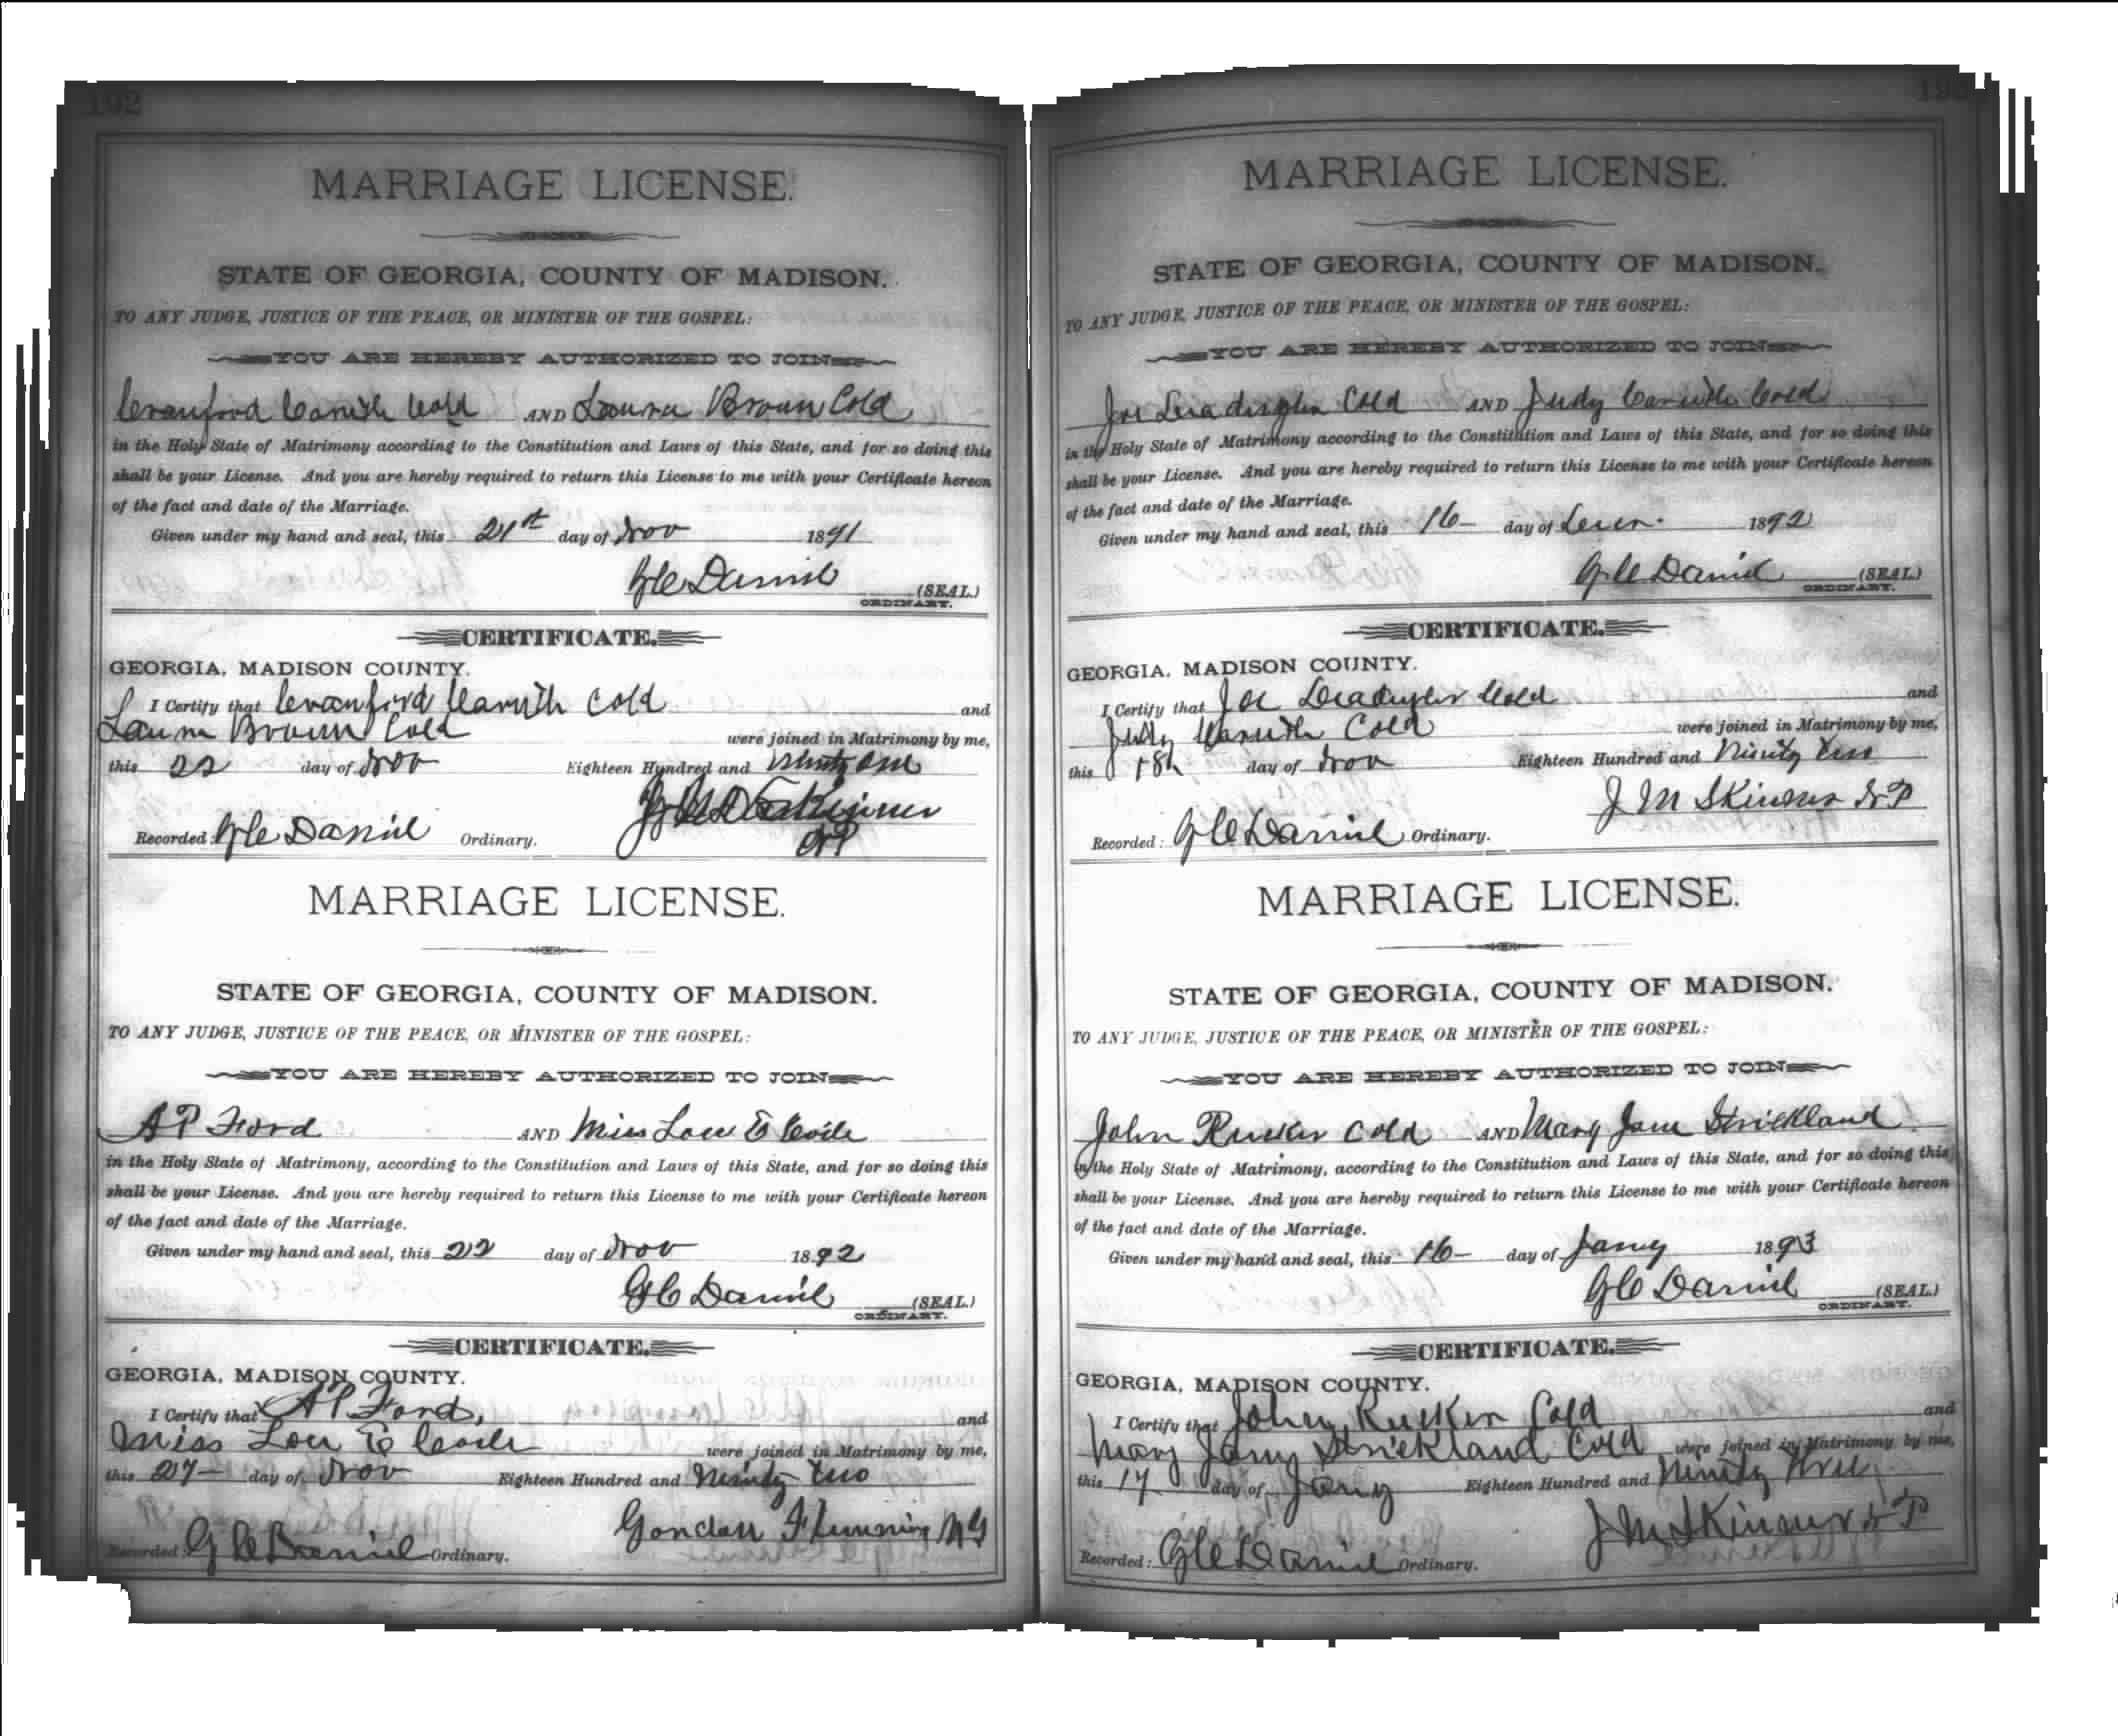 192
MARRIAGE LICENSE.
STATE OF GEORGIA, COUNTY OF MADISON.
TO ANY JUDGE, JUSTICE OF THE PEACE, OR MINISTER OF THE GOSPEL:
YOU ARE HEREBY AUTHORIZED TO JOIN
Cranford Caruth Cold AND Laura Brown Cold
in the Holy State of Matrimony according to the Constitution and Laws of this State, and for so doing this
shall be your License. And you are hereby required to return this License to me with your Certificate hereon
of the fact and date of the Marriage.
Given under my hand and seal, this 21st day of Nov 1891
G C Daniel (SEAL.)
ORDINARY.
CERTIFICATE.
GEORGIA, MADISON COUNTY.
I Certify that Cranford Caruth Cold and
Laura Brown Cold were joined in Matrimony by me,
this 22 day of Nov Eighteen Hundred and Ninety one
Skinner
Recorded: G C Daniel Ordinary.
MARRIAGE LICENSE.
STATE OF GEORGIA, COUNTY OF MADISON.
TO ANY JUDGE, JUSTICE OF THE PEACE, OR MINISTER OF THE GOSPEL:
YOU ARE HEREBY AUTHORIZED TO JOIN
A P Ford AND Miss Lou E
in the Holy State of Matrimony, according to the Constitution and Laws of this State, and for so doing this
shall be your License. And you are hereby required to return this License to me with your Certificate hereon
of the fact and date of the Marriage.
Given under my hand and seal, this 22 day of Nov 1892
G C Daniel (SEAL.)
ORDINARY.
CERTIFICATE.
GEORGIA, MADISON COUNTY.
I Certify that A P Ford, and
Miss Lou E were joined in Matrimony by me,
this 27 day of Nov Eighteen Hundred and Ninety two
Flemming M G
Recorded: G C Daniel Ordinary.
193
MARRIAGE LICENSE.
STATE OF GEORGIA, COUNTY OF MADISON.
TO ANY JUDGE, JUSTICE OF THE PEACE, OR MINISTER OF THE GOSPEL:
YOU ARE HEREBY AUTHORIZED TO JOIN
Joe Cold AND Judy Caruth Cold
in the Holy State of Matrimony according to the Constitution and Laws of this State, and for so doing this
shall be your License. And you are hereby required to return this License to me with your Certificate hereon
of the fact and date of the Marriage.
Given under my hand and seal, this 16 day of 1892
G C Daniel (SEAL.)
ORDINARY.
CERTIFICATE.
GEORGIA, MADISON COUNTY.
I Certify that Joe Deadwyler Cold and
Judy Caruth Cold were joined in Matrimony by me,
this 18th day of Nov Eighteen Hundred and Ninety two
J M Skinner N P
Recorded: G C Daniel Ordinary.
MARRIAGE LICENSE.
STATE OF GEORGIA, COUNTY OF MADISON.
TO ANY JUDGE, JUSTICE OF THE PEACE, OR MINISTER OF THE GOSPEL:
YOU ARE HEREBY AUTHORIZED TO JOIN
John Rucker Cold AND Mary Jane Strickland
in the Holy State of Matrimony, according to the Constitution and Laws of this State, and for so doing this
shall be your License. And you are hereby required to return this License to me with your Certificate hereon
of the fact and date of the Marriage.
Given under my hand and seal, this 16 day of Jany 1893
G C Daniel (SEAL.)
ORDINARY.
CERTIFICATE.
GEORGIA, MADISON COUNTY.
I Certify that John Rucker Cold and
Mary Jany Strickland Cold were joined in Matrimony by me,
this 17 day of Jany Eighteen Hundred and Ninety three
J M Skinner N P
Recorded: G C Daniel Ordinary.